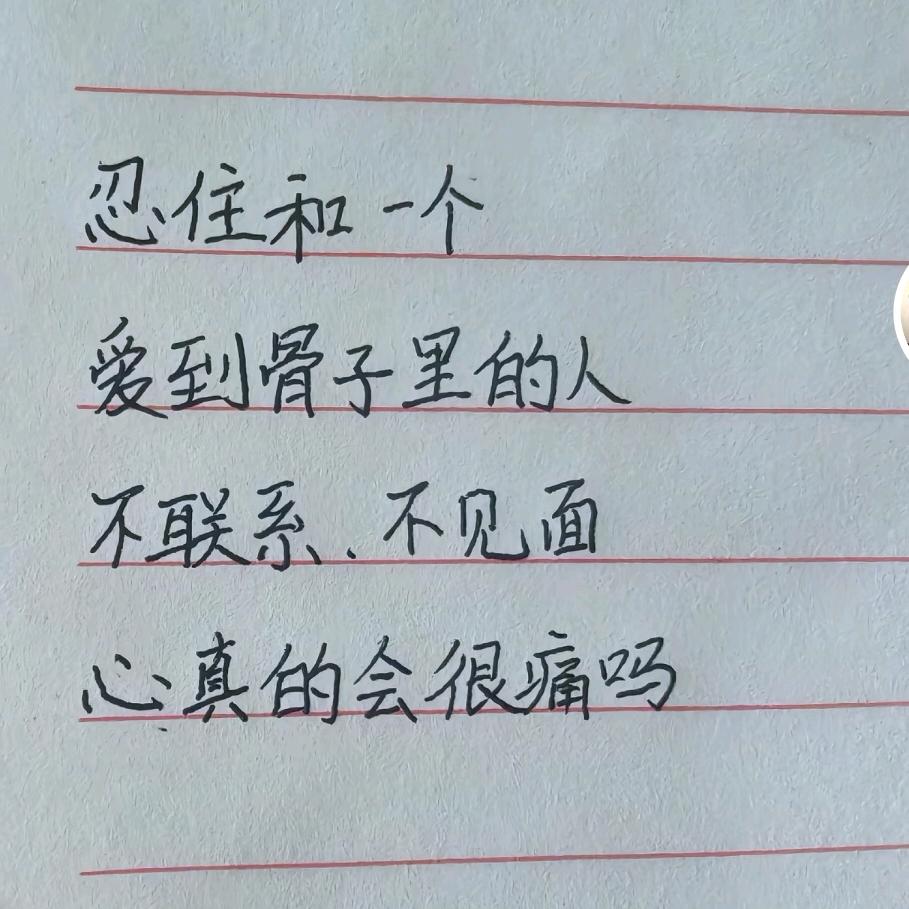 忍住和一个
爱到骨子里的人
不联系、不见面
心真的会很痛吗